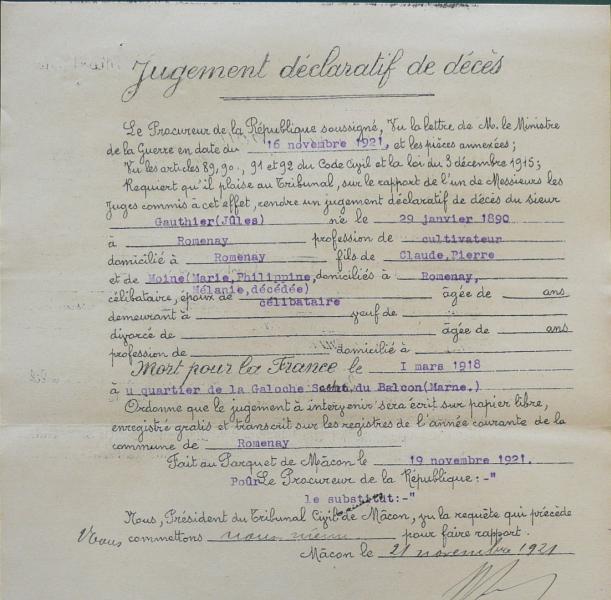 Jugement déclaratif de décès
Le Procureur de la République soussigné, Vu la lettre de M. le Ministre
de la Guerre en date du 16 novembre 1921, et les pièces annexées;
Vu les articles 89, 90, 91 et 92 du Code Civil et la loi du 3 décembre 1915;
Requiert qu'il plaise au Tribunal, sur le rapport de l'un de Messieurs les
Juges commis à cet effet, rendre un jugement déclaratif de décès du sieur
Gauthier(Jûles) né le 29 janvier 1890
à Romenay profession de cultivateur
domicilié à Romenay fils de Claude,Pierre
et de Moine(Marie,Philippine, domiciliés à Romenay,
Mélanie,décédée)
célibataire, époux de célibataire âgée de ans
demeurant à veuf de
divorcé de âgée de ans
profession de domicilié à
Mort pour la France le I mars 1918
à u quartier de la Galoche du Balcon(Marne.)
Ordonne que le jugement à intervenir sera écrit sur papier libre,
enregistré gratis et transcrit sur les registres de l'année courante de la
commune de Romenay
Fait au Parquet de Mâcon le 19 novembre 1921.
Poûr Le Procureur de la République:-"
le substitut:-"
Nous, Président du Tribunal Civil de Mâcon, vu la requête qui précède
commettons pour faire rapport.
Mâcon le 21 novembre 1921